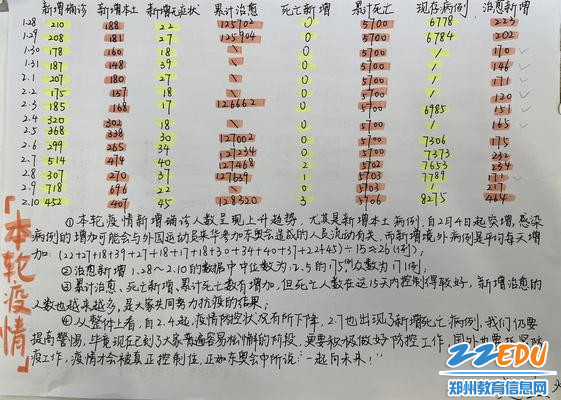 新增确诊 新增本土 新增无症状 累计治愈 死亡新增 累计死亡 现存病例 治愈新增
1.28 210 188 22 125702 0 5700 6778 223
1.29 208 181 27 125904 0 5700 6784 202
1.30 178 160 18 \ 0 5700 / 170
1.31 187 148 39 \ 0 5700 / 146
2.1 207 180 27 \ 0 5700 / 171
2.2 175 157 18 \ 0 5700 / 120
2.3 185 168 17 126662 0 5700 6985 151
2.4 320 302 18 \ 0 5700 / 165
2.5 368 338 30 127002 0 5700 7306 175
2.6 299 265 34 127234 0 5700 7373 232
2.7 514 474 40 127468 2 5702 7653 234
2.8 307 270 37 127639 1 5703 7789 171
2.9 718 696 22
2.10 452 407 45 128320 3 5706 8275 464
「本轮疫情」
①本轮疫情新增确诊人数呈现上升趋势，尤其是新增本土病例，自2月4日起突增，感染
病例的增加可能会与外国运动员来华参加冬奥会造成的人员流动有关，而新增境外病例是平均每天增
加：(22+27+18+39+27+18+17+18+30+34+40+37+22+45)÷15≈26(例)；
②治愈新增1.28～2.10的数据中中位数为：2.5的175例，众数为171例；
③累计治愈、死亡新增、累计死亡数有增加，但死亡人数在这15天内控制得较好，新增治愈的
人数也越来越多，是大家共同努力抗疫的结果；
④从整体上看，自2.4起，疫情防控状况有所下降，2.7也出现了新增死亡病例，我们仍要
提高警惕，毕竟现在已到了大家普遍容易松懈的阶段，更要积极做好防控工作，国外也要
疫工作，疫情才会被真正控制住，正如冬奥会中所说：一起向未来！
ZZEDU
郑州教育信息网